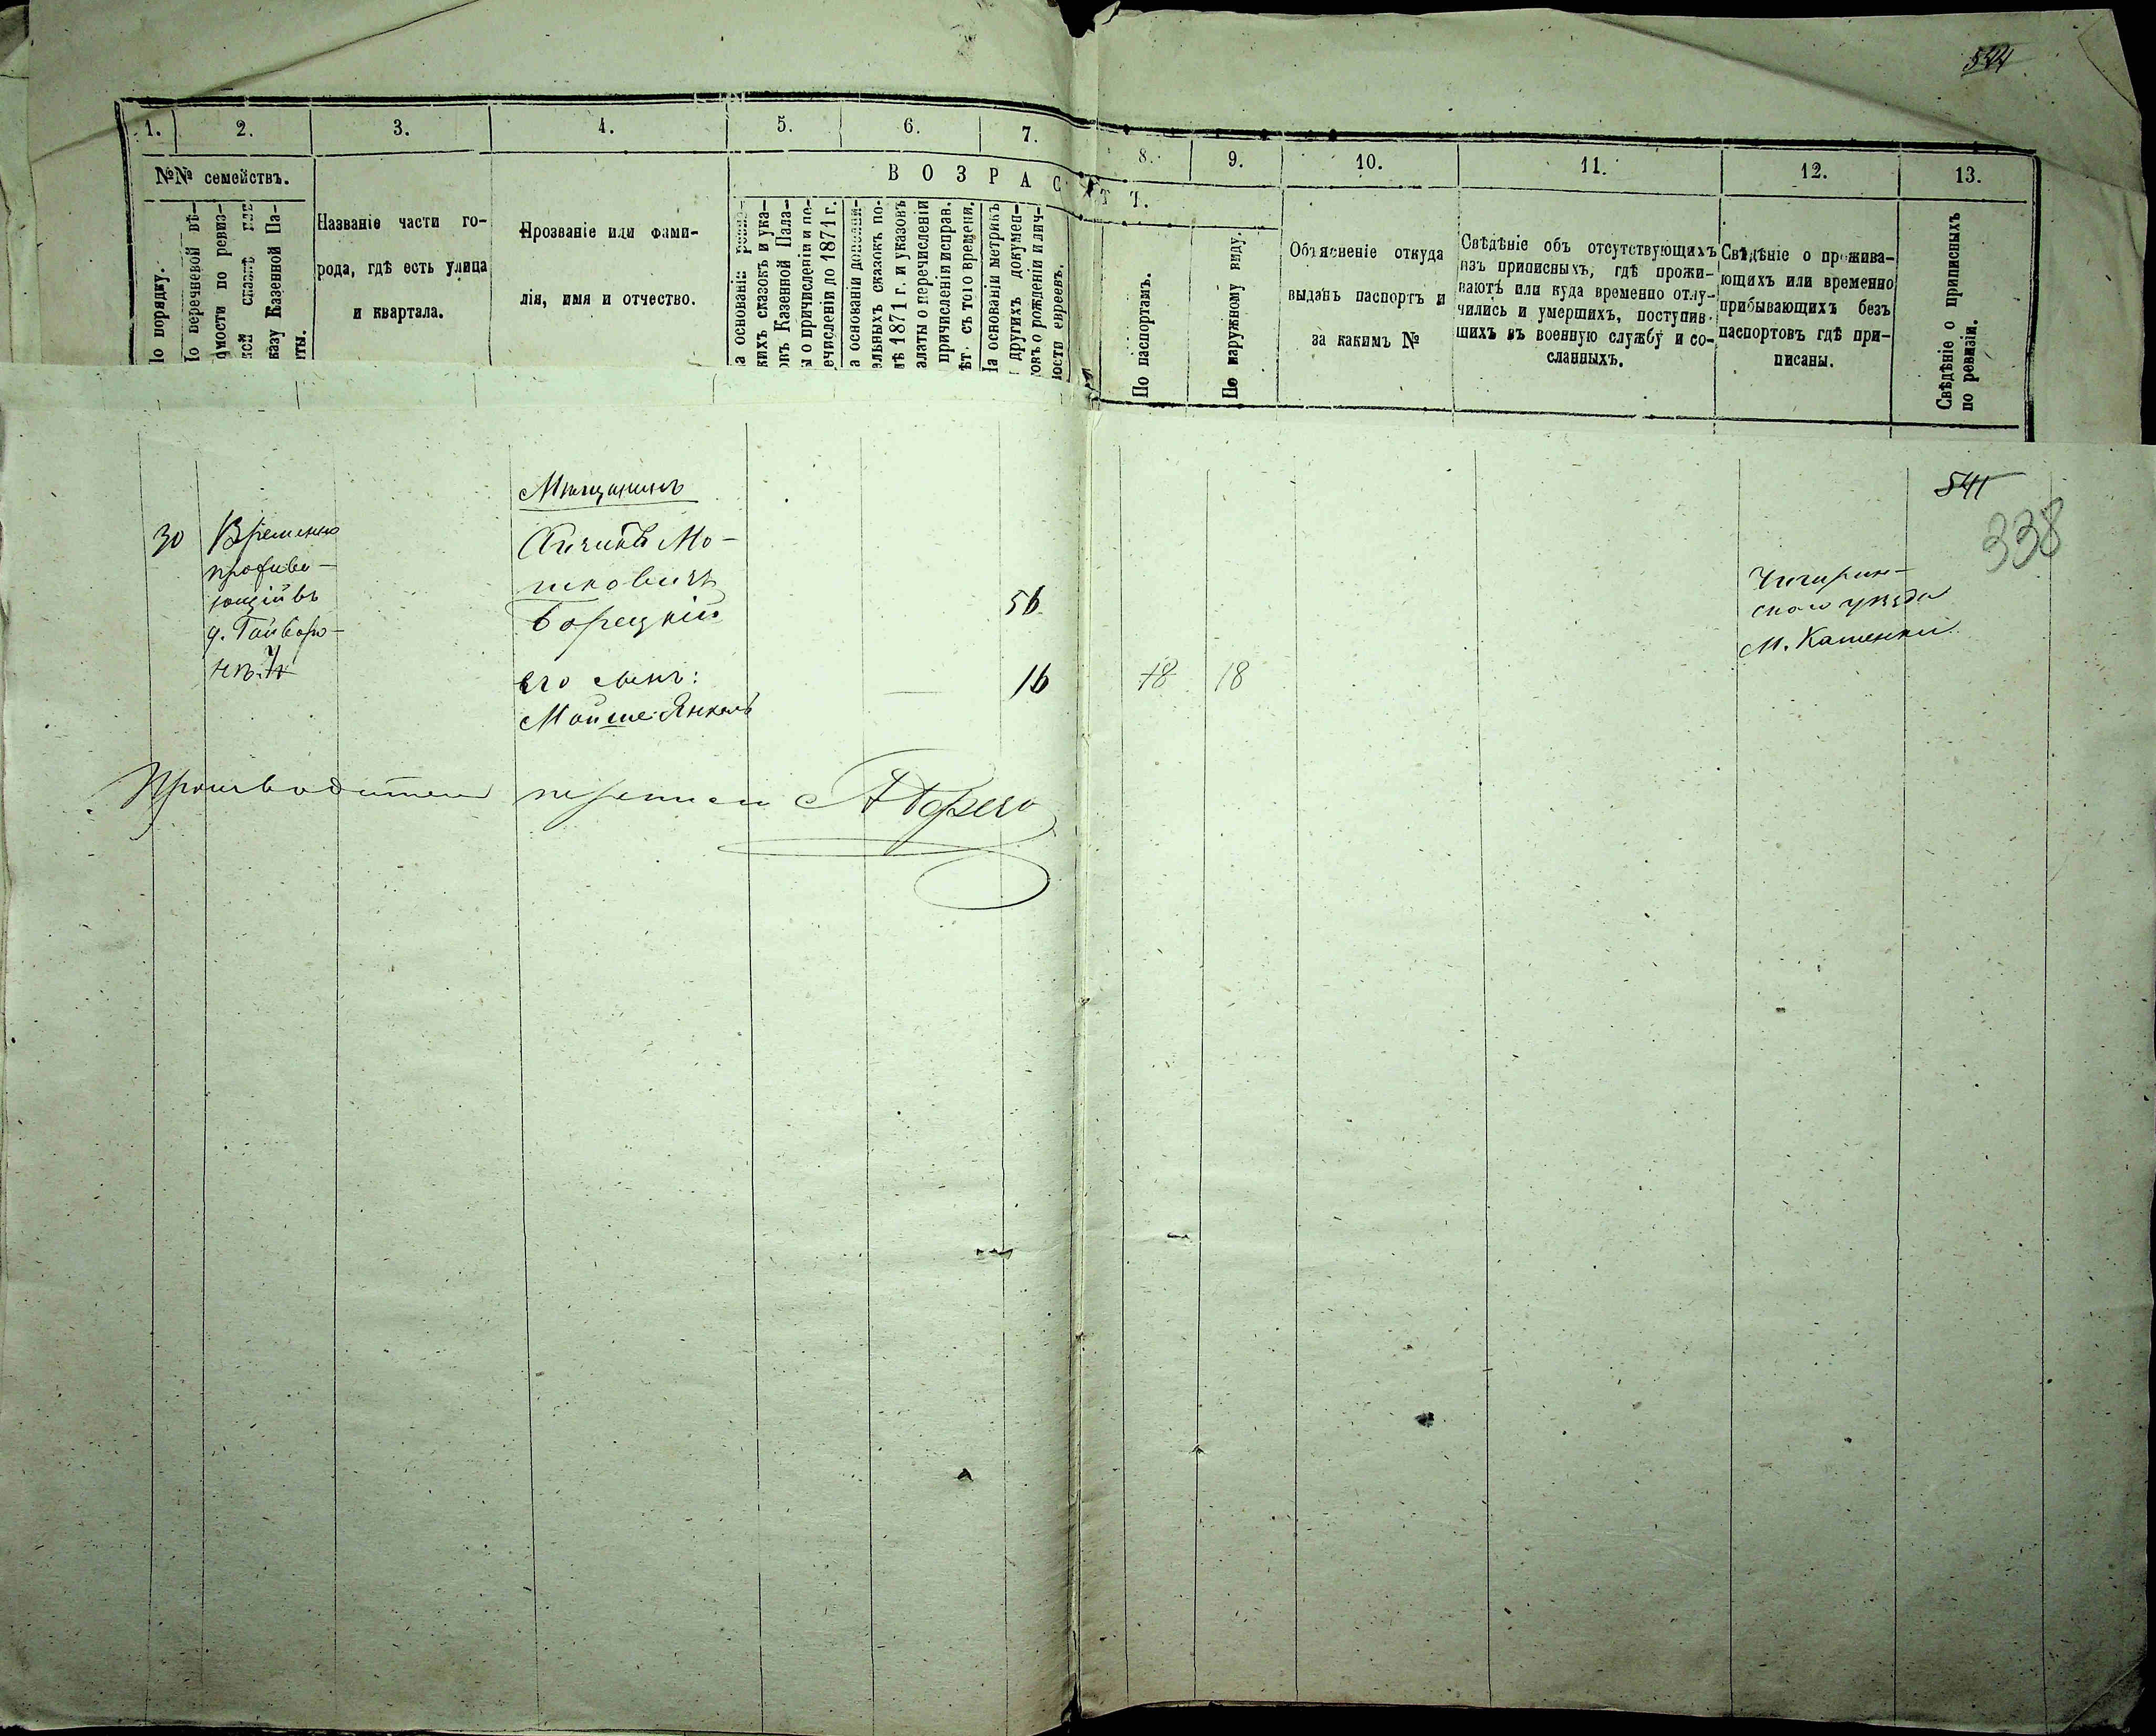 544
1. 2. 3. 4. 5. 6. 7. 8. 9. 10. 11. 12. 13.
№№ семействъ.
ВОЗРАСТЪ.
По порядку.
По перечневой вѣ-
домости по ревиз-
казу Казенной Па-
Названіе части го-
рода, гдѣ есть улица
и квартала.
Прозваніе или фами-
лія, имя и отчество.
На основаніи
скихъ сказокъ и ука-
зовъ Казенной Пала-
ты о причисленіи и пе-
речисленіи до 1871 г.
На основаніи дополни-
тельныхъ сказокъ по-
1871 г. и указовъ
Палаты о перечисленіи
причисленіи исправ.
лѣт. съ того времени.
На основаніи метрикъ
и другихъ докумен-
товъ о рожденіи и лич-
ности евреевъ.
По паспортамъ.
По наружному виду.
Объясненіе откуда
выданъ паспортъ и
за какимъ №
Свѣдѣніе объ отсутствующихъ
изъ приписныхъ, гдѣ прожи-
ваютъ или куда временно отлу-
чились и умершихъ, поступив-
шихъ въ военную службу и со-
сланныхъ.
Свѣдѣніе о прожива-
ющихъ или временно
прибывающихъ безъ
паспортовъ гдѣ при-
писаны.
Свѣдѣніе о приписныхъ
по ревизіи.
541
338
Мѣщанинъ
30
Временно
прожива-
ющій въ
д. Гайворо-
нѣ.
Мо-
шковичъ
Борецкій
56
его сынъ:
Мойше-Янкель
16
18
18
Чигирин-
скаго уѣзда
М. Каменки
Производитель переписи